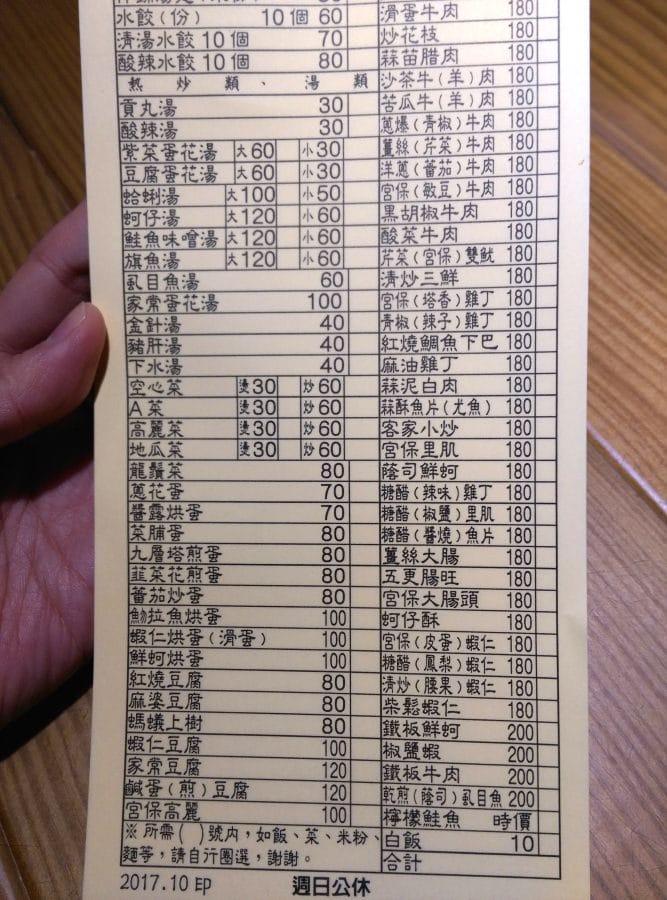 水餃(份) 10個 60
清湯水餃10個 70
酸辣水餃10個 80
熱炒類、湯類
貢丸湯 30
酸辣湯 30
紫菜蛋花湯 大60 小30
豆腐蛋花湯 大60 小30
蛤蜊湯 大100 小50
蚵仔湯 大120 小60
鮭魚味噌湯 大120 小60
旗魚湯 大120 小60
虱目魚湯 60
家常蛋花湯 100
金針湯 40
豬肝湯 40
下水湯 40
空心菜 燙30 炒60
A菜 燙30 炒60
高麗菜 燙30 炒60
地瓜菜 燙30 炒60
龍鬚菜 80
蔥花蛋 70
醬露烘蛋 70
菜脯蛋 80
九層塔煎蛋 80
韮菜花煎蛋 80
蕃茄炒蛋 80
魩拉魚烘蛋 100
蝦仁烘蛋(滑蛋) 100
鮮蚵烘蛋 100
紅燒豆腐 80
麻婆豆腐 80
螞蟻上樹 80
蝦仁豆腐 100
家常豆腐 120
鹹蛋(煎)豆腐 120
宮保高麗 100
※所需( )號內,如飯、菜、米粉、
麵等,請自行圈選,謝謝。
滑蛋牛肉 180
炒花枝 180
蒜苗腊肉 180
沙茶牛(羊)肉 180
苦瓜牛(羊)肉 180
蔥爆(青椒)牛肉 180
薑絲(芹菜)牛肉 180
洋蔥(蕃茄)牛肉 180
宮保(敏豆)牛肉 180
黑胡椒牛肉 180
酸菜牛肉 180
芹菜(宮保)雙魷 180
清炒三鮮 180
宮保(塔香)雞丁 180
青椒(辣子)雞丁 180
紅燒鯛魚下巴 180
麻油雞丁 180
蒜泥白肉 180
蒜酥魚片(尤魚) 180
客家小炒 180
宮保里肌 180
蔭司鮮蚵 180
糖醋(辣味)雞丁 180
糖醋(椒鹽)里肌 180
糖醋(醬燒)魚片 180
薑絲大腸 180
五更腸旺 180
宮保大腸頭 180
蚵仔酥 180
宮保(皮蛋)蝦仁 180
糖醋(鳳梨)蝦仁 180
清炒(腰果)蝦仁 180
柴鬆蝦仁 180
鐵板鮮蚵 200
椒鹽蝦 200
鐵板牛肉 200
乾煎(蔭司)虱目魚 200
檸檬鮭魚 時價
白飯 10
合計
2017.10 EP 週日公休